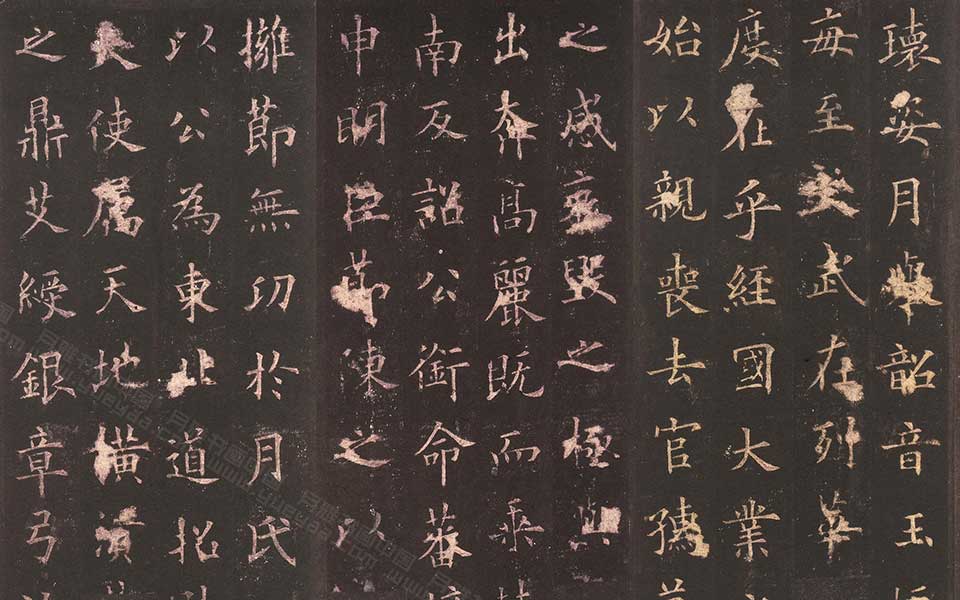 瓌姿月韶音玉
每至文武在列華
度在乎經國大業
始以親喪去官孺
之感哀毀之極與
出奔高麗既而乘
南反詔公銜命蕃
申明臣節陳之以
擁節無功於月氏
以公為東北道招
大使属天地橫潰
之鼎艾綬銀章弓